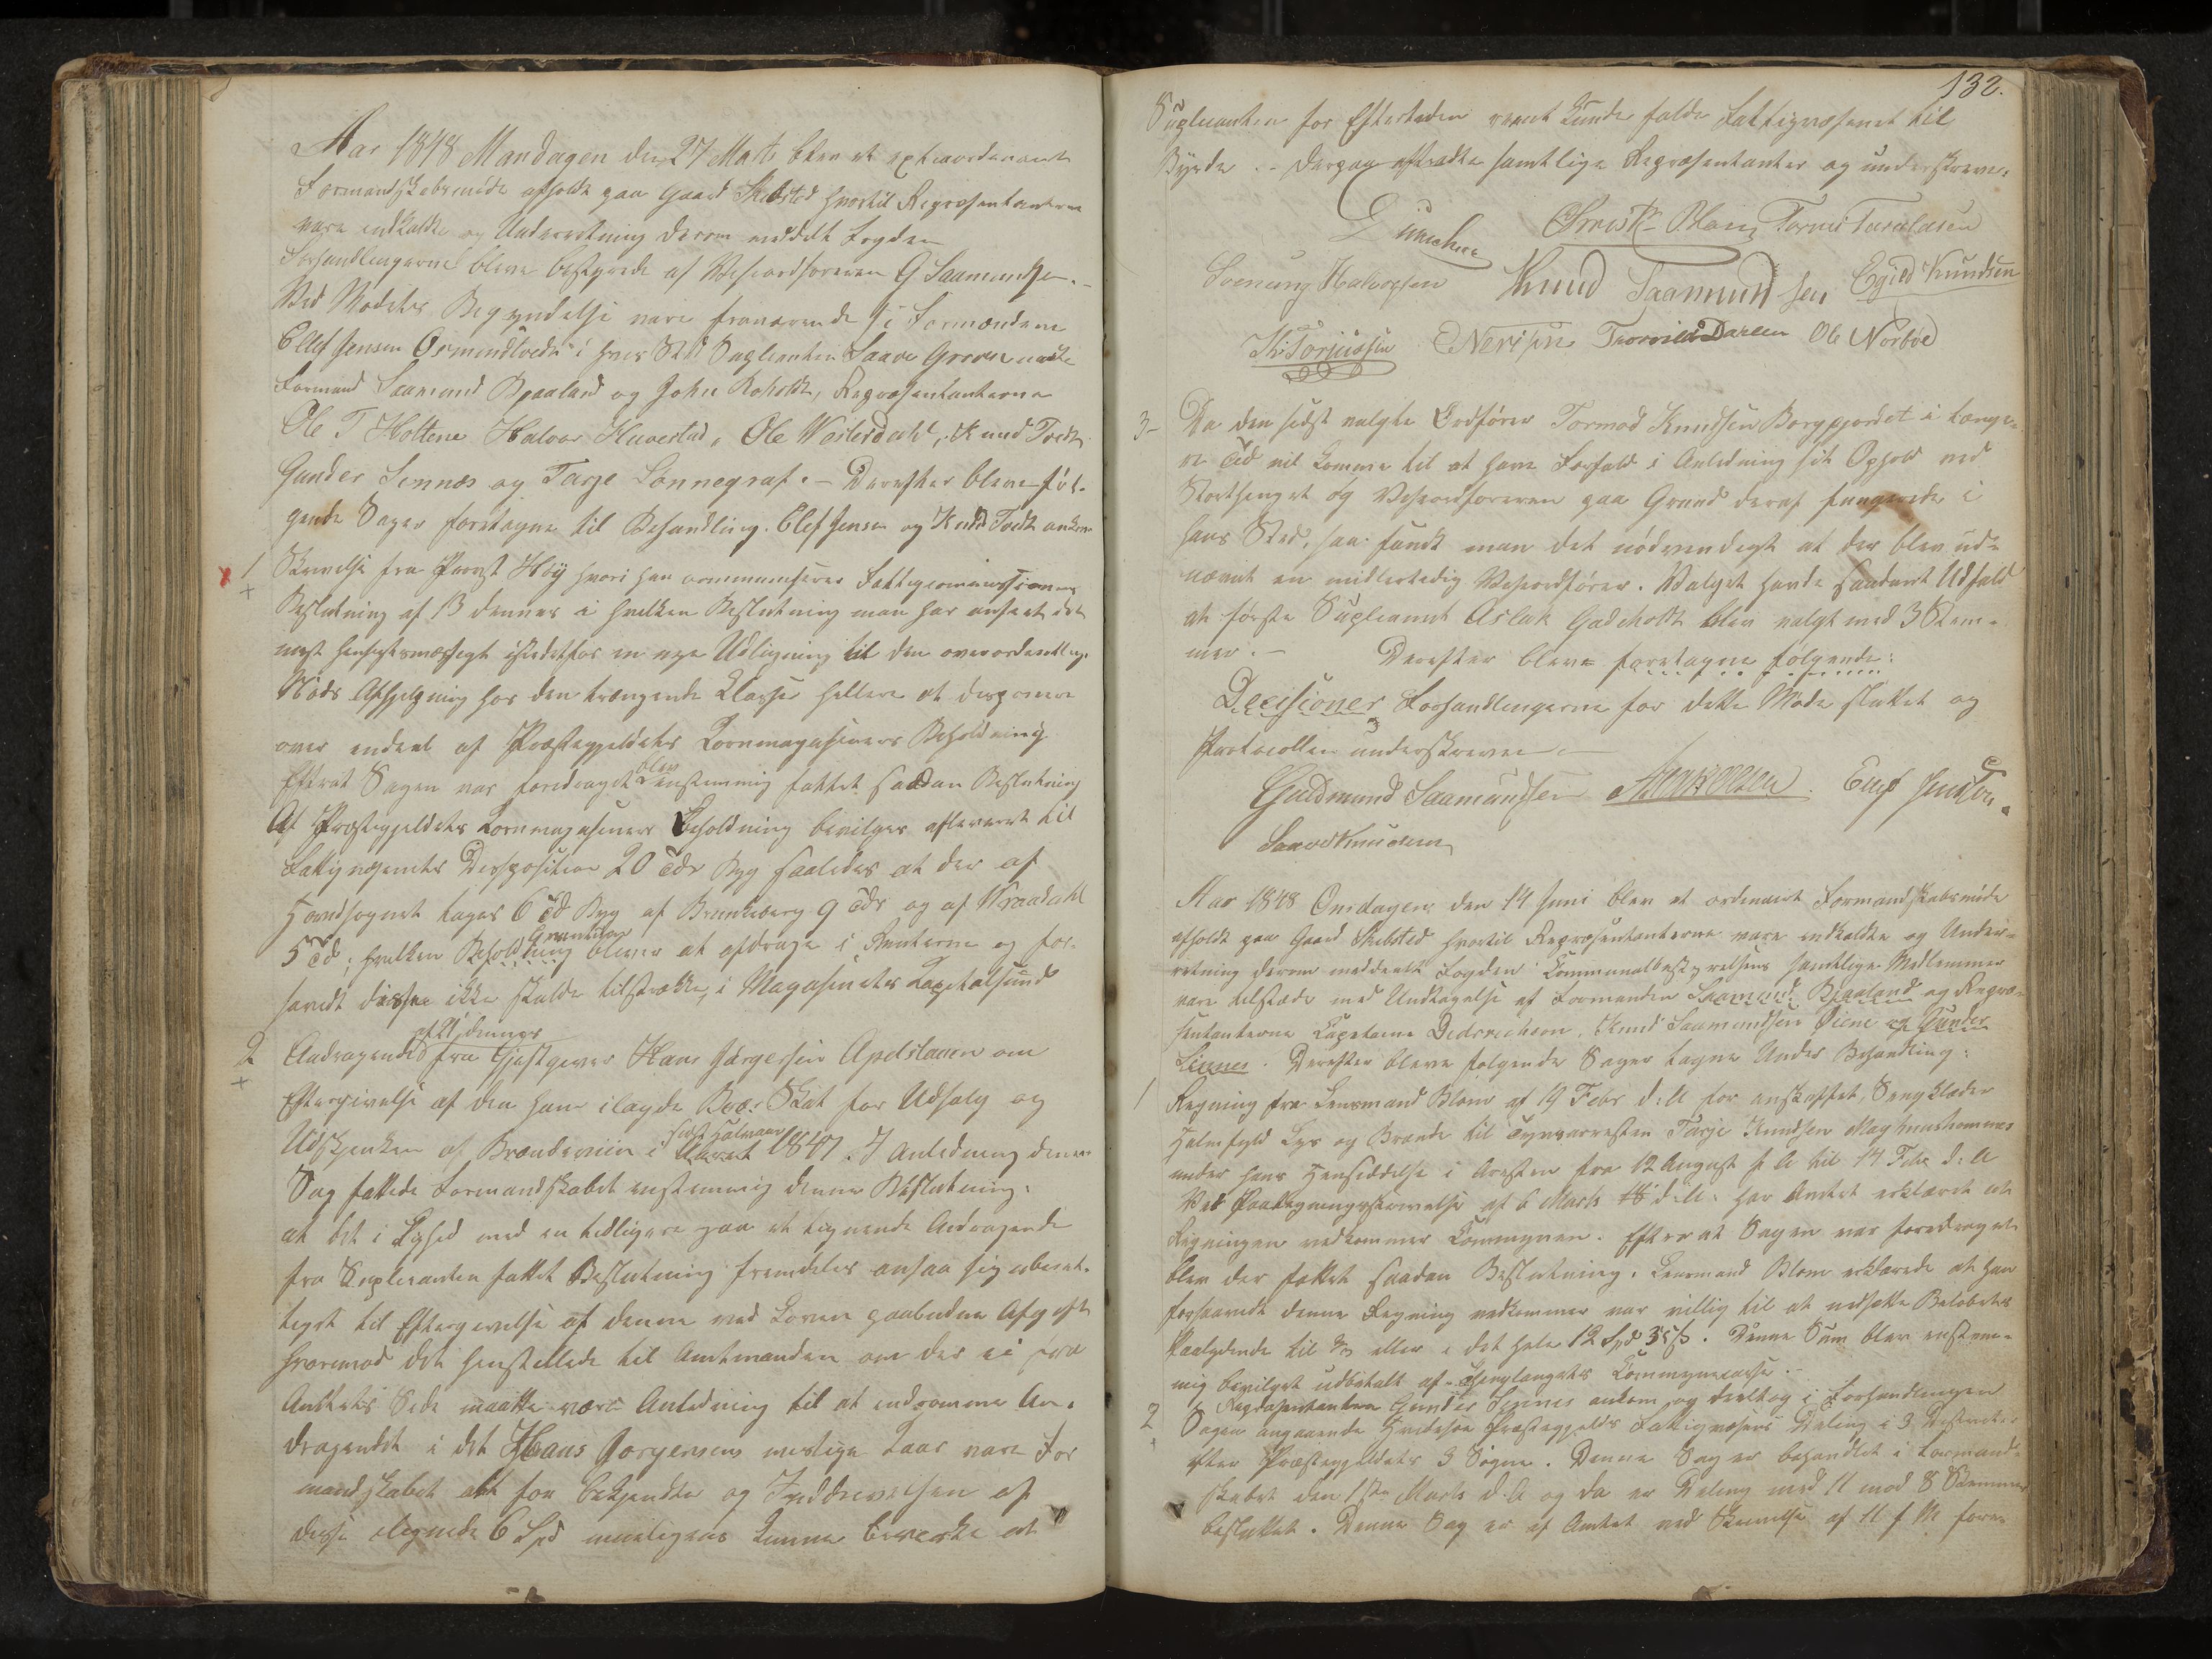 Aar 1848 Mandagen den 27 Marts blev et extraordenairt
Formandskabsmöde afholdt paa Gaard Skibsted hvortil Repræsentanterne
vare indkaldte og Underretning derom meddelt Fogden
Forhandlingerne bleve bestyrede af Viseordföreren G Saamundsen.-
Ved Mödets Begyndelse vare fraværende af Formændene
Ellef Jensen Osmundtvedt i hvis Sted Supleanten Saave Groven mödte
Formand Saamund Bjaaland og John Roholdt, Repræsentanterne
Ole T Holtene Halvor Haavestad, Ole Westerdahl, Knud Tvedt
Gunder Sinnes og Tarje Lönnegraf.- Derefter bleve föl-
gende Sager foretagne til Behandling. Ellef Jensen og Knud Tvedt ankom
1 Skrivelse fra Provst Höy hvori han communiserer Fattigcommissionens
Beslutning af 13 dennes i hvilken Beslutning man har anseet det
mest hensigtsmæssigt istedetfor en nye Udligning til den overordentlige
Nöds Afhjelpning hos den trængende Classe hellere at disponere
over endeel af Præstegjeldets Kornmagasiners Beholdning
Efterat Sagen var foredraget blev eenstemmig fattet saadan Beslutning
Af Præstegjeldets Kornmagasiners Beholdning bevilges afleveret til
Fattigvæsenets Disposition 20 Tdr Byg saaledes at der af
Hovedsognet tages 6 Td Byg af Brunkeberg 9 Tdr og af Vraadahl
5 Td; hvilken Beholdning bliver at afdrage i Renterne og for-
saavidt disse ikke skulde tilstrække, i Magasinets Kapitalfund
2 Andragende af 21 dennes fra Gjæstgiver Hans Jörgensen Apelstauen om
Eftergivelse af den ham ilagde Skat for Udsalg og
Udskjenken af Brændeviin i sidste Halvaar 1847. I Anledning denne
Sag fattede Formandskabet enstemmig denne Beslutning:
at det i Lighed med en tidligere paa et lignende Andragende
fra Suplicanten fattet Beslutning fremdeles ansaa sig uberet-
tiget til Eftergivelse af denne ved Loven paabudne Afgift
hvorimod det henstillede til Amtmanden om der ei fra
Amtets Side maatte være Anledning til at indrömme An-
dragendet i det Hans Jörgensens uheldige Kaar vare For-
mandskabet alt for bekjendte og Inddrivelsen af
disse lignede 6 Spd muligens kunne bevirke at
132.
Supleanten for Eftertiden kunde falde Fattigvæsenet til
Byrde.- Derpaa aftraadte samtlige Repræsentanter og underskreve:
Christ Blom Torvus Taraldsen
Svenung Halvorsen Knud Saamundsen Egild Knudsen
K. Torjussen Nerison Thorvild Dalen Ole Norböe
3- Da den sidst valgte Ordförer Tormod Knudsen Borgegjordet i længe-
re Tid vil komme til at have Forfald i Anledning sit Ophold ved
Storthinget og Viseordföreren paa Grund deraf fungerede i
hans Sted, saa fandt man det nödvendigt at der blev ud-
nævnt en midlertidig Viseordförer. Valget havde saadant Udfald
at förste Supleant Aslak Gadeholt blev valgt med 3 Stem-
mer.- Derefter bleve foretagne fölgende:
Decisioner Forhandlingerne for dette Möde sluttet og
Protocollen underskreven
Guldmund Saamundsen Aslak Olsen Ellef Jensen.
Saave Knudsen
Aar 1848 Onsdagen den 14 Juni blev et ordinairt Formandskabsmöde
afholdt paa Gaard Skibsted hvortil Repræsentanterne vare indkaldte og Under-
retning derom meddeelt Fogden Communalbestyrelsens samtlige Medlemmer
vare tilstæde med Undtagelse af Formanden Saamund Bjaaland og Repræ-
sentanterne Capitaine Didrichson, Knud Saamundsen Öiene og Gunder
Sinnes. Derefter bleve fölgende Sager tagne Under Behandling:
1 Regning fra Lensmand Blom af 19 Febr d:A for anskaffet, Sengklæder
Halmfyld Lys og Brænde til Tyvsarrestan Tarje Knudsen
under hans Hensiddelse i Aresten fra 12 August f A til 14 Febr d:A
Ved Paategningsskrivelse af 6 Marts d:A: har Amtet erklæret at
Regningen vedkommer Communen. Efterat Sagen var foredraget
blev der fattet saadan Beslutning. Lensmand Blom erklærede at han
forsaavidt denne Regning vedkommer var villig til at nedsætte Belöbets
Paalydende til eller i det hele 12 Spd 35 ß. Denne Sum blev enstem-
mig bevilget udbetalt af Communecassen.-
Repræsentanten Gunder Sinnes ankom og deeltog i Forhandlingen
2 Sagen angaaende Hvidesöe Præstegjelds Fattigvæsens Deling i 3 Districter
efter Præstegjeldets 3 Sogne. Denne Sag er behandlet i Formand-
skabet den 1ste Marts d.A og da er Deling med 11 mod 8 Stemmer
besluttet. Denne Sag er af Amtet ved Skrivelse af 11 f M fore-